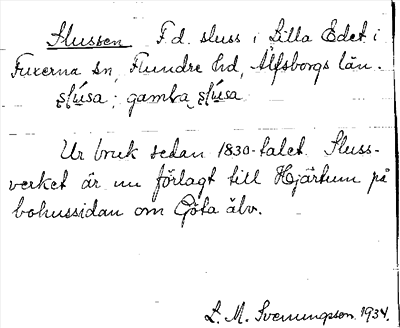 Slussen F d. sluss i Lilla Edet i
Fuxerna sn, Flundre hd, Älfsborgs län.
slúsa; gamla slúsa
Ur bruk sedan 1830-talet. Sluss-
verket är nu förlagt till Hjärtum på
bohussidan om Göta älv.
L. M. Svenungsson. 1934.